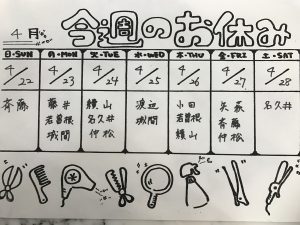 4月 今週のお休み
日・SUN 月・MON 火・TUE 水・WED 木・THU 金・FRI 土・SAT
4/22 4/23 4/24 4/25 4/26 4/27 4/28
斉藤 藤井 績山 渡辺 小田 矢萩 名久井
若曽根 名久井 城間 若曽根 斉藤
城間 仲松 績山 仲松